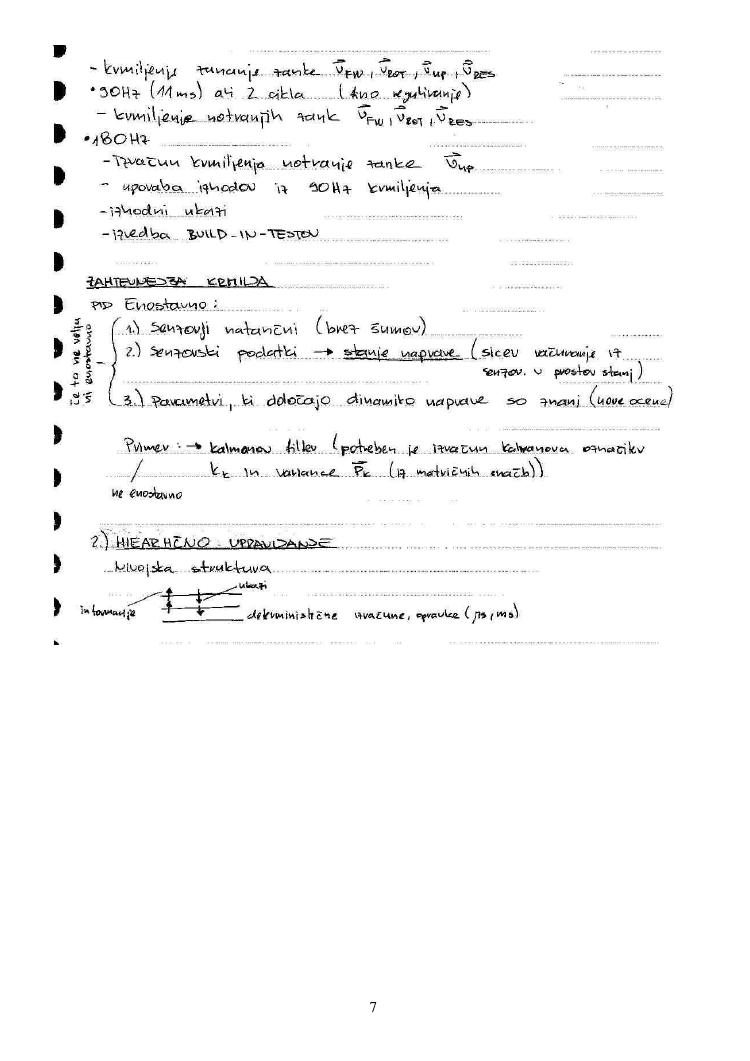 - krmiljenje zunanje zanke v̄FW, v̄ROT, v̄up, v̄RES
• 90Hz (11ms) ali 2 cikla (fino reguliranje)
- krmiljenje notranjih zank v̄FW, v̄ROT, v̄RES
• 180Hz
- Izračun krmiljenja notranje zanke v̄up
- uporaba izhodov iz 90Hz krmiljenja
- izhodni ukazi
- izvedba BUILD-IN-TESTOV
ZAHTEVNEJŠA KRMILJA
PID Enostavno:
1.) Senzorji natančni (brez šumov)
2.) Senzorski podatki → stanje naprave (sicer računanje iz
senzor. v prostor stanj)
3.) Parametri, ki določajo dinamiko naprave so znani (nove ocene)
če to ne velja
ni enostavno
Primer: → kalmanov filter (potreben je izračun kalmanova označikv
kk in variance P̄k (iz matričnih enačb))
ne enostavno
2.) HIEARHČNO UPRAVLJANJE
Nivojska struktura
ukazi
informacije
deterministične izračune, opravke (μs, ms)
7